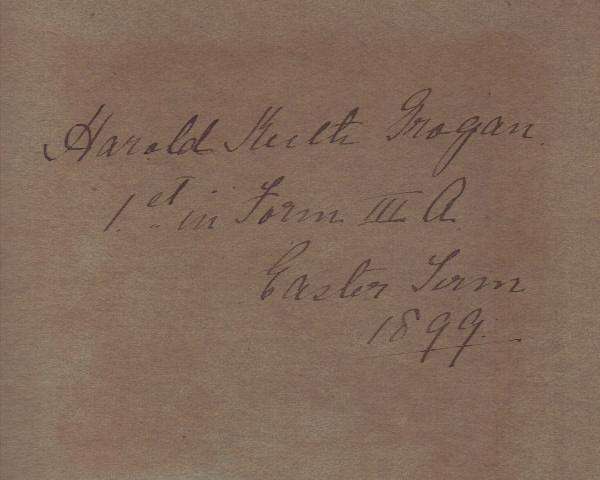 Harold Keith Grogan.
1.st in Form III A
Easter Term
1899.